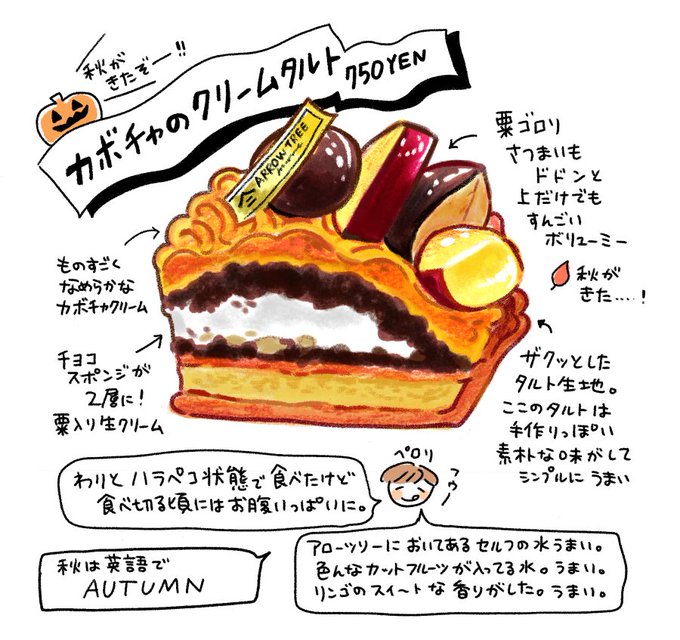 秋が
きたぞー!!
カボチャのクリームタルト 750YEN
ARROW TREE
栗ゴロリ
さつまいも
ドドンと
上だけでも
すんごい
ボリューミー
秋が
きた....!
ものすごく
なめらかな
カボチャクリーム
チョコ
スポンジが
2層に!
栗入り生クリーム
ザクッとした
タルト生地。
ここのタルトは
手作りっぽい
素朴な味がして
シンプルにうまい
ペロリ
フゥー
わりとハラペコ状態で食べたけど
食べ切る頃にはお腹いっぱいに。
秋は英語で
AUTUMN
アローツリーにおいてあるセルフの水うまい。
色んなカットフルーツが入ってる水。うまい。
リンゴのスイートな香りがした。うまい。